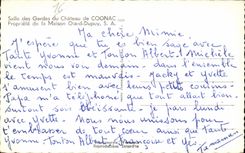 16
Salle des Gardes du Château de COGNAC
Propriété de la Maison Otard-Dupuy, S. A.
Ma chère Mimie
J'espère que tu es bien sage avec
Tante Yvonne et Tonton Albert. Michèle
vient nous voir dans l'ensemble
le temps est mauvais. Jacky et Yvette
s'amusent bien avec leurs petits cousins
Papa m'a téléphoné que tout allait bien
surtout son je pars lundi
avec Yvette. Nous nous unissons pour
t'embrasser de tout cœur ainsi que Tante
Yvonne, Tonton Albert, Françoise et
Ta maman